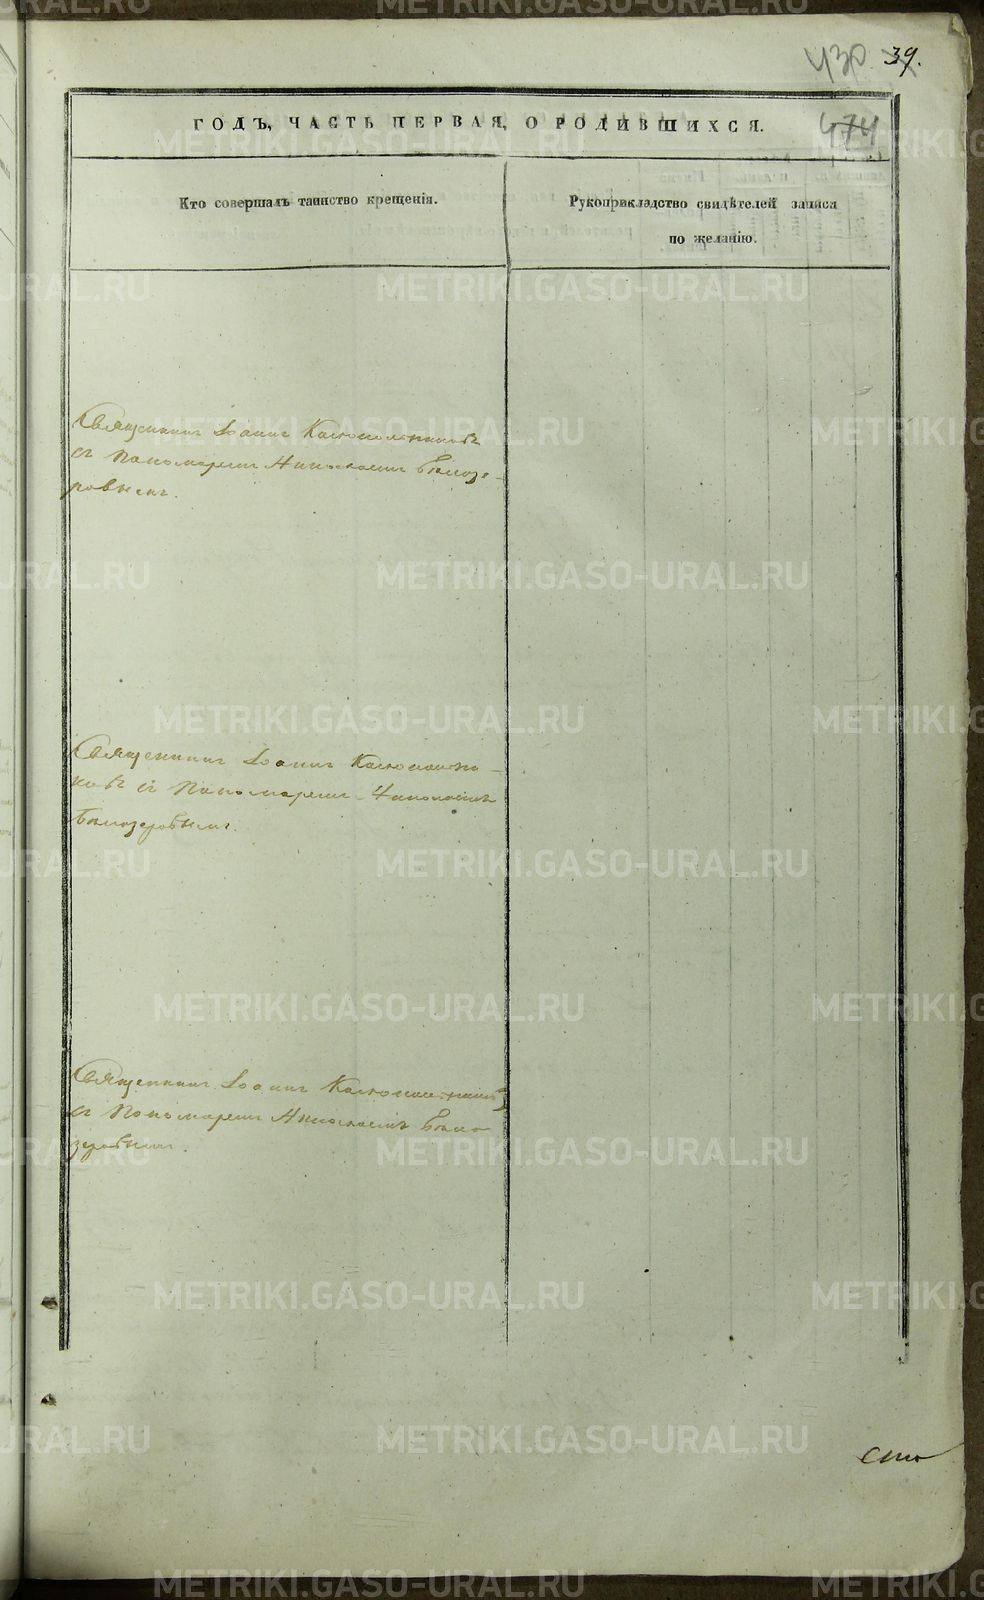 430 39.
ГОДЪ, ЧАСТЬ ПЕРВАЯ, О РОДИВШИХСЯ.
474
Кто совершалъ таинство крещенія.
Рукоприкладство свидѣтелей записи
по желанію.
Священникъ Іоаннъ
съ Пономаремъ Николаемъ Бѣлозе-
ровымъ.
Священникъ Іоаннъ
съ Пономаремъ Николаемъ
Бѣлозеровымъ.
Священникъ Іоаннъ
съ Пономаремъ Николаемъ Бѣло-
зеровымъ.
METRIKI.GASO-URAL.RU